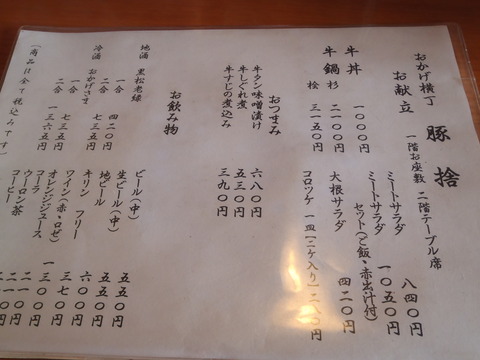 おかげ横丁 豚捨
お献立 一階お座敷 二階テーブル席
ミートサラダ 八四〇円
ミートサラダ 一〇五〇円
セット(ご飯・赤出汁付)
大根サラダ 四二〇円
コロッケ 一皿[二ケ入り]二八〇円
牛丼 一〇〇〇円
牛鍋 杉 二一〇〇円
桧 三一五〇円
おつまみ
牛タン味噌漬け 六八〇円
牛しぐれ煮 五三〇円
牛すじの煮込み 三九〇円
お飲み物
ビール(中) 五五〇円
生ビール(中) 五五〇円
地ビール 五五〇円
キリン フリー 六〇〇円
ワイン(赤・ロゼ) 三七〇円
オレンジジュース
ウーロン茶
コーヒー
地酒 黒松老緑
一合 四二〇円
二合 七三五円
冷酒 おかげさま
一合 七三五円
二合 一三六五円
(商品は全て税込みです)